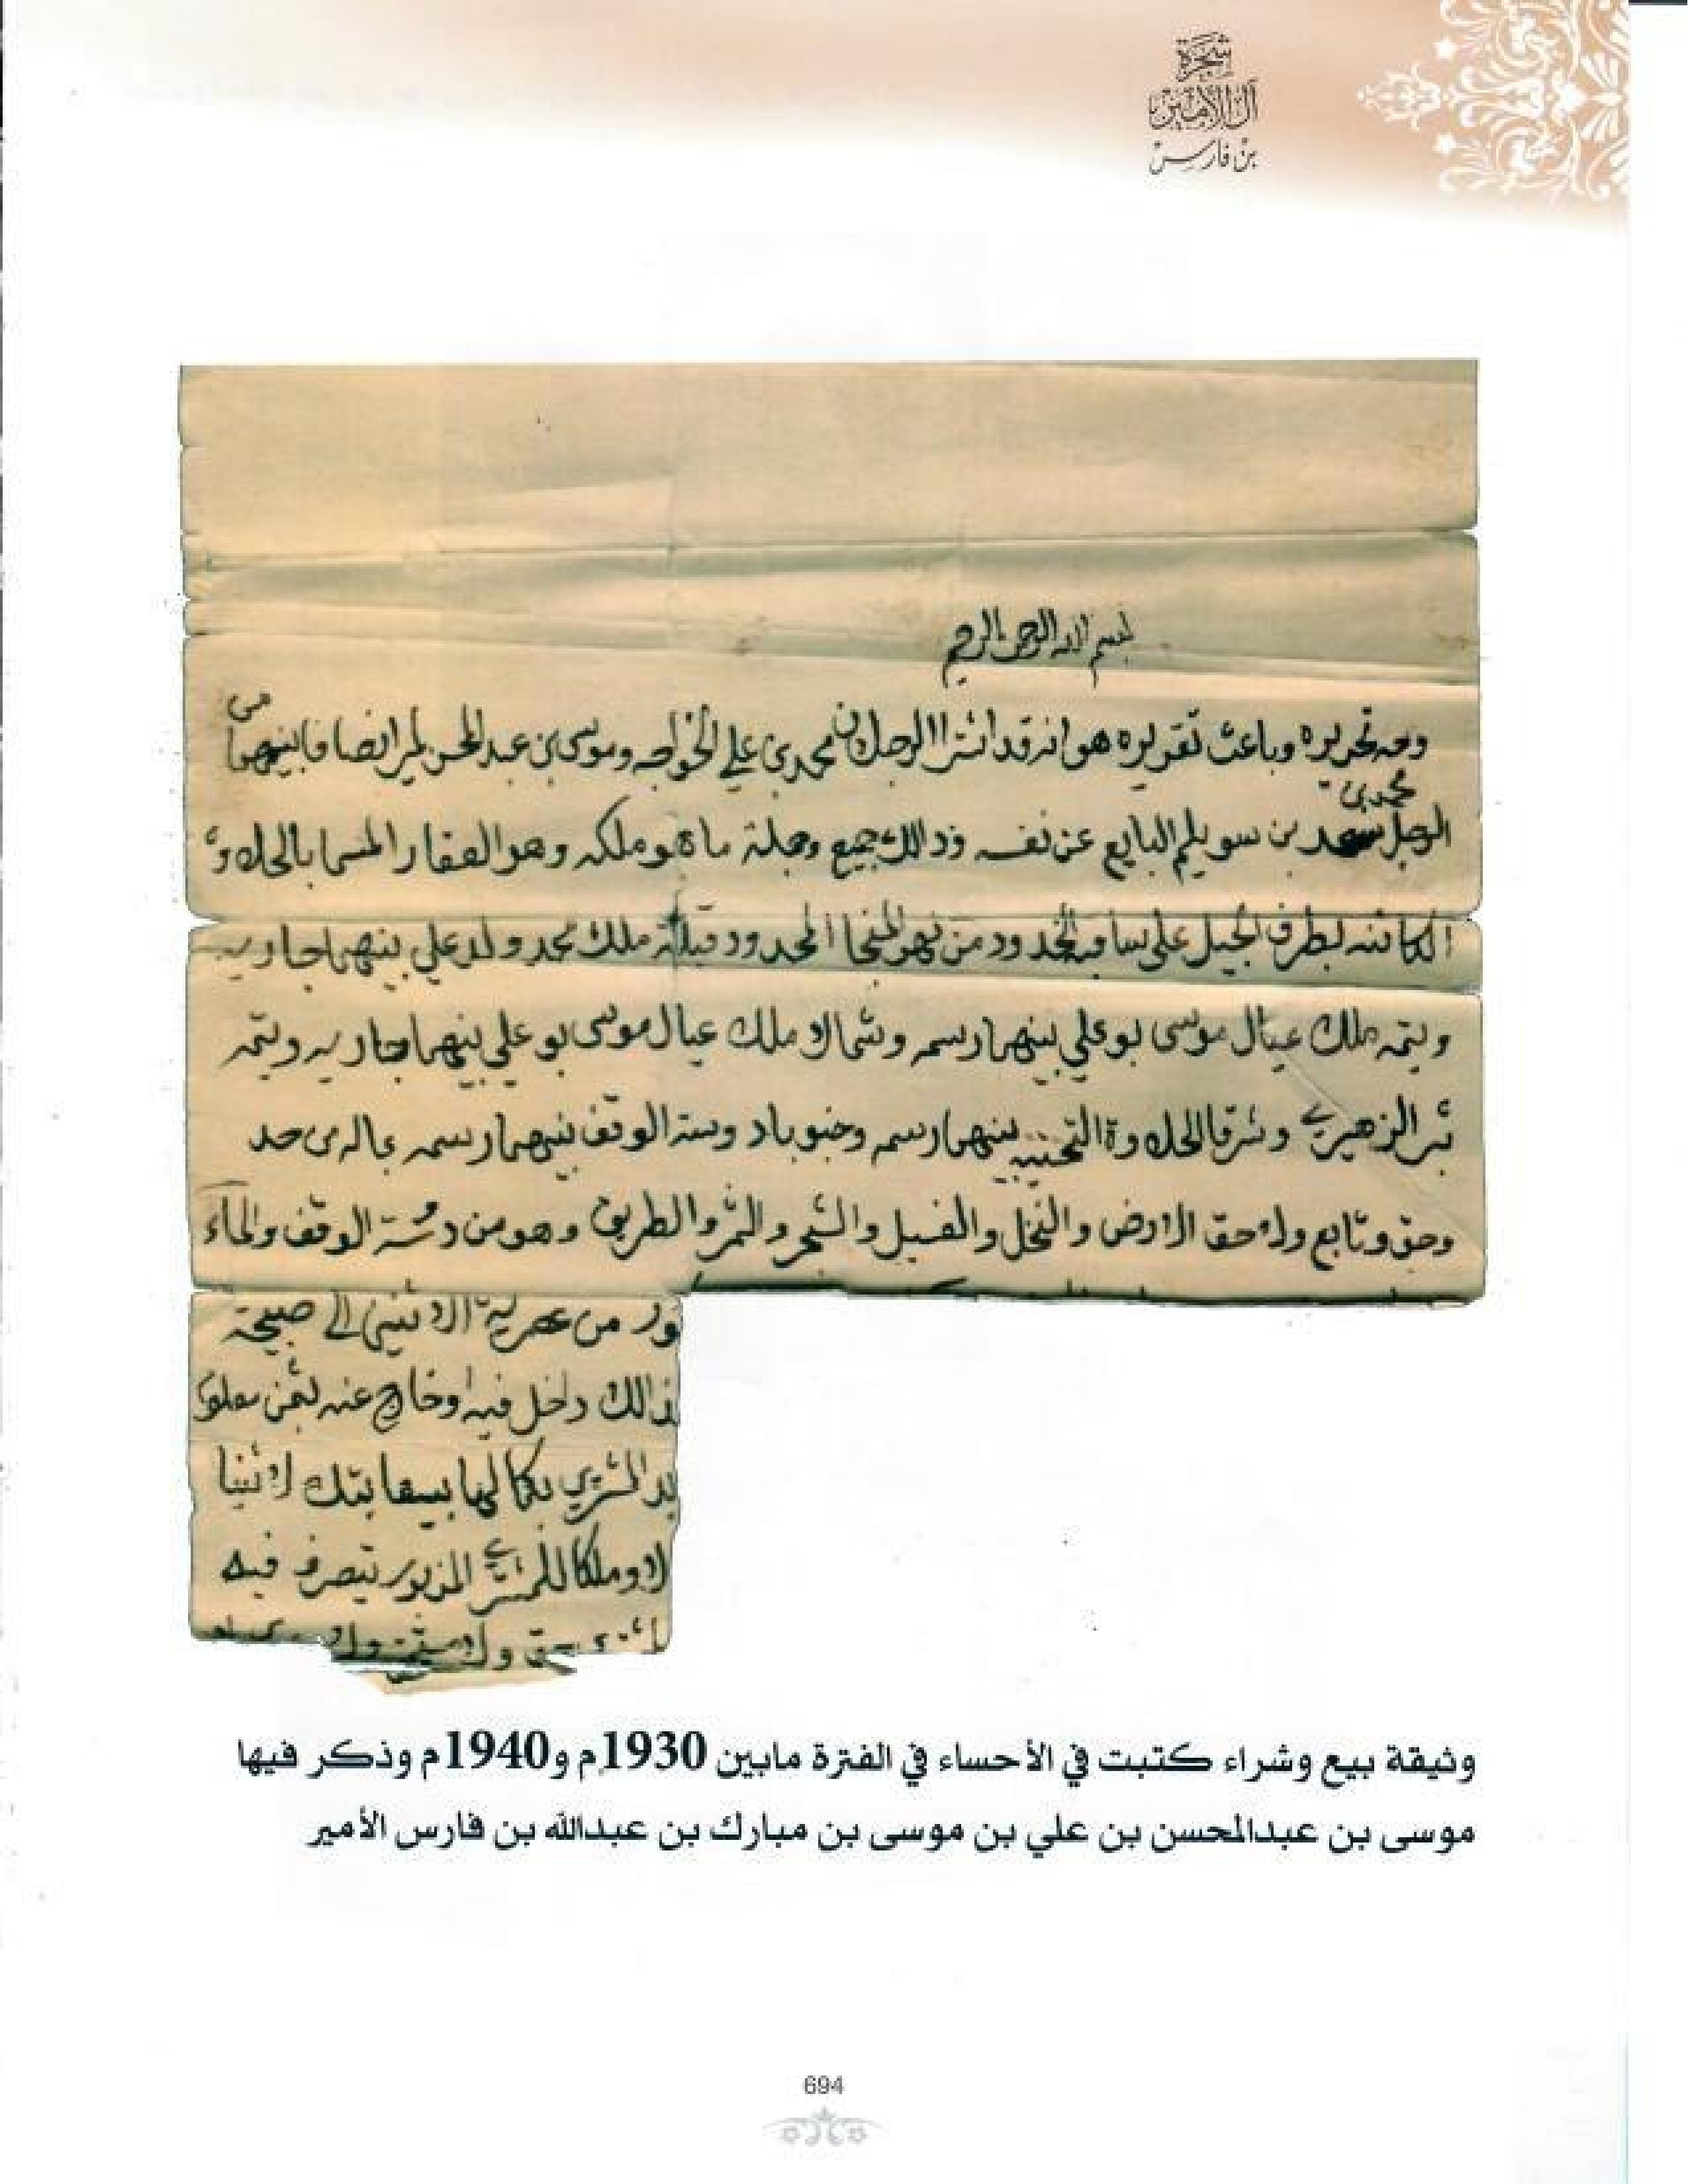 شجرة
آل الأمير
بن فارس
بسم الله الرحمن الرحيم
وجه تحريره وباعث تقريره هو انه قد اشترا الرجلان محمد بن علي الخواجه وموسى بن عبد المحسن لمير انصافا بينهما من
محمد بن
الرجل سعد بن سويلم البايع عن نفسه وذالك جميع وجملة ما هو ملكه وهو العقار المسما بالحلاوة
الكائنه بطرف الجبيل على ساقية الخدود من نهر المنجا المحدود قبلة ملك محمد ولد علي بينهما جاريه
ويتمه ملك عيال موسى بو علي بينهما رسم وشمالا ملك عيال موسى بو علي بينهما جاريه ويتمه
بئر الزهيري وشرقا الحلاوة التحتيه بينهما رسم وجنوبا دوسة الوقف بينهما رسم بماله من حد
وحق وتابع ولاحق الارض والنخل والفسيل والشجر والثمر والطريق وهو من دوسة الوقف والماء
من عصرية الاثنين الى صبحة
ذالك داخل فيه وخارج عنه بثمن معلوم
المشتري بكمالها
وملكا للمشتري المزبور يتصرف فيه
وثيقة بيع وشراء كتبت في الأحساء في الفترة مابين 1930م و1940م وذكر فيها
موسى بن عبدالمحسن بن علي بن موسى بن مبارك بن عبدالله بن فارس الأمير
694